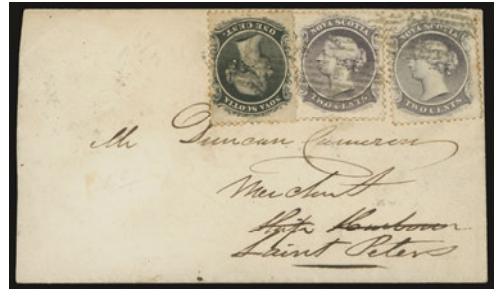 NOVA SCOTIA
ONE CENT.
NOVA SCOTIA
TWO CENTS
NOVA SCOTIA
TWO CENTS
Mr Duncan Cameron
Merchant
Saint Peters